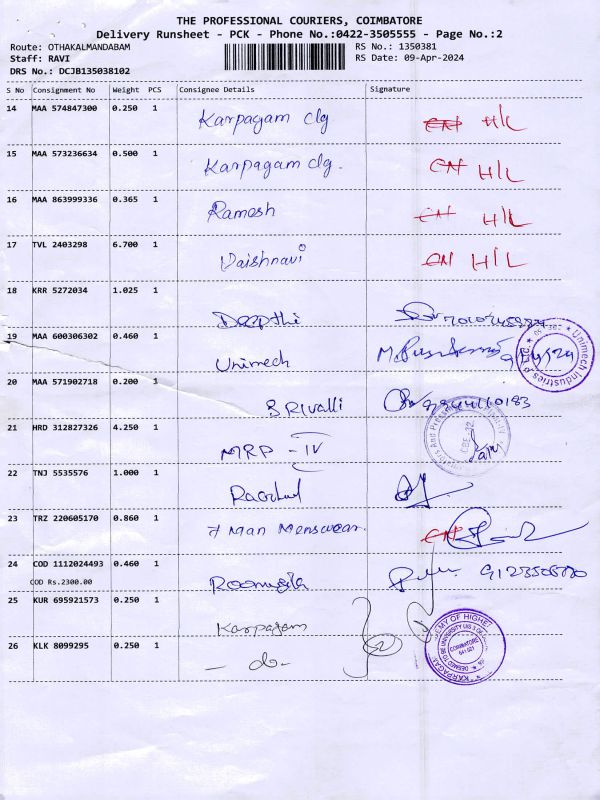 THE PROFESSIONAL COURIERS, COIMBATORE
Delivery Runsheet - PCK - Phone No.:0422-3505555 - Page No.:2
Route: OTHAKALMANDABAM RS No.: 1350381
Staff: RAVI RS Date: 09-Apr-2024
DRS No.: DCJB135038102
S No Consignment No Weight PCS Consignee Details Signature
14 MAA 574847300 0.250 1 Karpagam clg H/L
15 MAA 573236634 0.500 1 Karpagam clg. H/L
16 MAA 863999336 0.365 1 Ramesh H/L
17 TVL 2403298 6.700 1 Vaishnavi H/L
18 KRR 5272034 1.025 1 Deepthi
19 MAA 600306302 0.460 1 Unimech 9/4/24
Unimech Industries
20 MAA 571902718 0.200 1 SRivalli
21 HRD 312827326 4.250 1 MRP - IV
22 TNJ 5535576 1.000 1
23 TRZ 220605170 0.860 1 7 Man Menswear.
24 COD 1112024493 0.460 1
COD Rs.2300.00
25 KUR 695921573 0.250 1 Karpagam
26 KLK 8099295 0.250 1 - do -
COIMBATORE
641 021